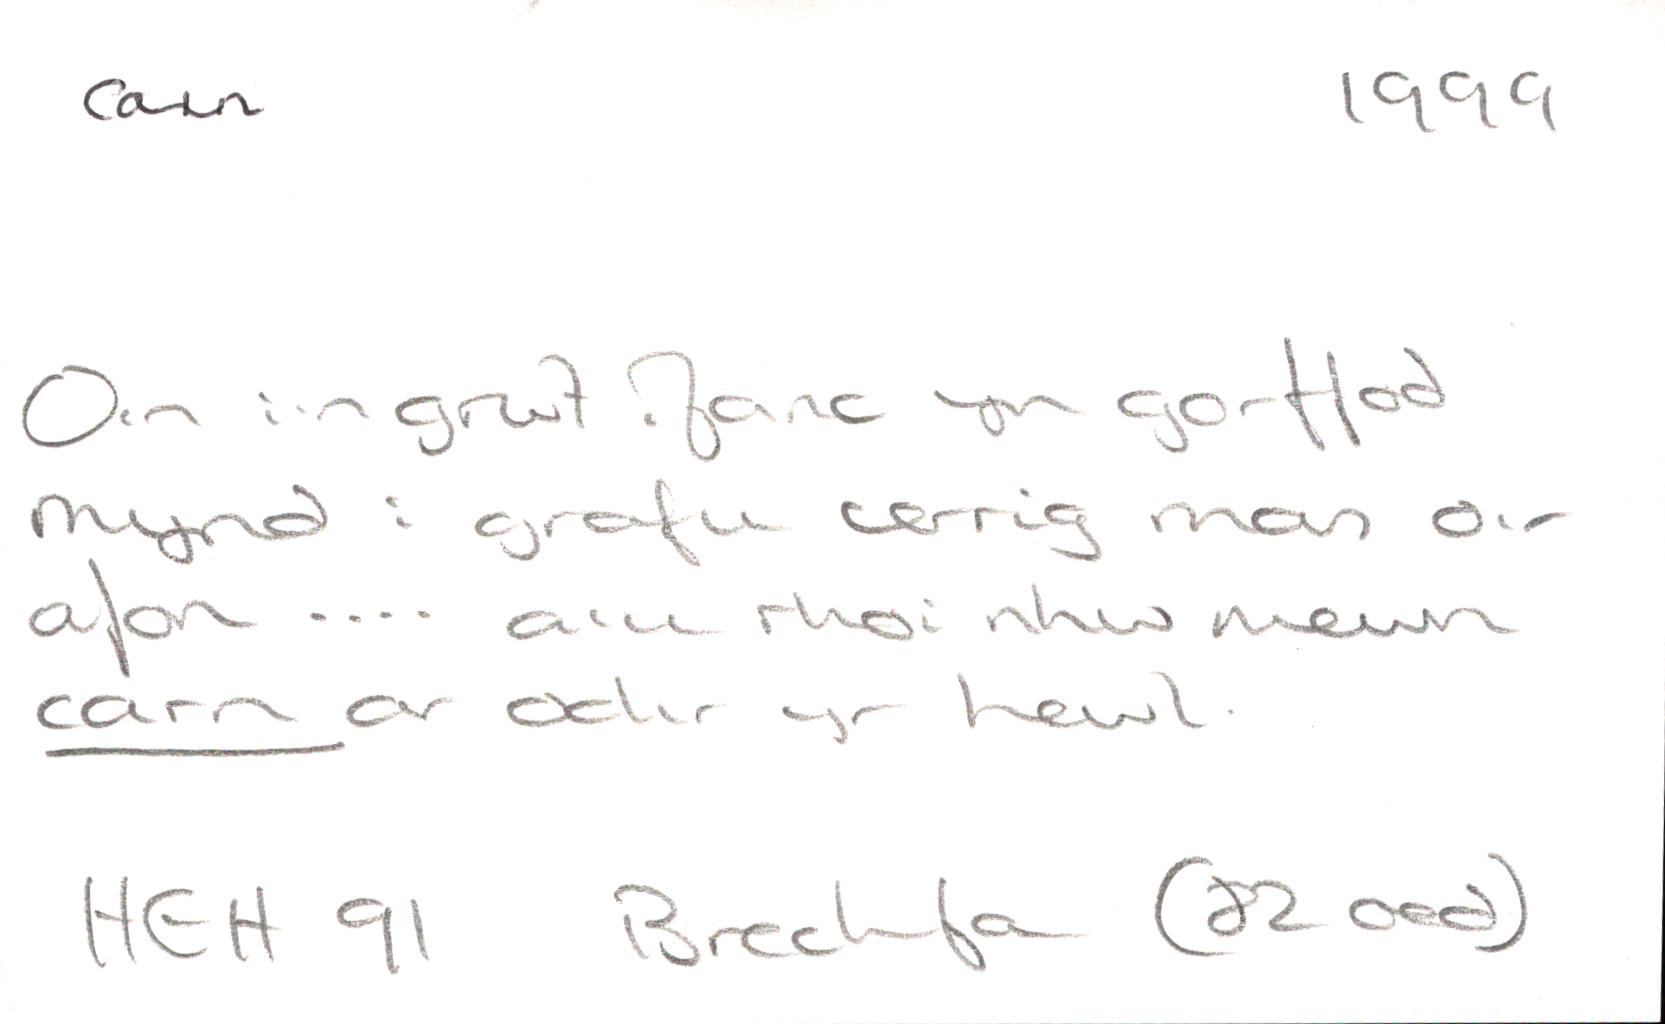 carn 1999
Oin i'n grwt ifanc yn gorffod
mynd i grafu cerrig man o'r
afon .... a'u rhoi nhw mewn
carn ar ochr yr hewl.
HEH 91 Brechfa (82 oed)